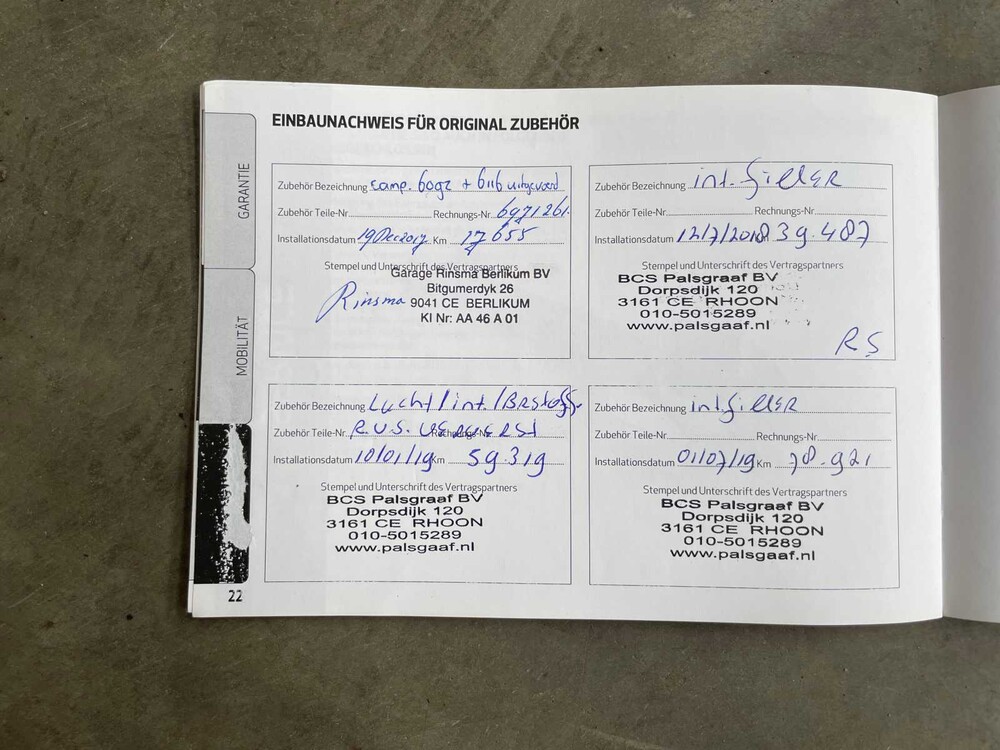 EINBAUNACHWEIS FÜR ORIGINAL ZUBEHÖR
GARANTIE
MOBILITÄT
Zubehör Bezeichnung camp. 60g2 + 6116 uitgevoerd
Zubehör Teile-Nr. Rechnungs-Nr. 6971261.
Installationsdatum 19 Dec 2017 Km 17655
Stempel und Unterschrift des Vertragspartners
Garage Rinsma Berlikum BV
Bitgumerdyk 26
Rinsma 9041 CE BERLIKUM
KI Nr: AA 46 A 01
Zubehör Bezeichnung int. filler
Zubehör Teile-Nr. Rechnungs-Nr.
Installationsdatum 12/7/2018 39.487
Stempel und Unterschrift des Vertragspartners
BCS Palsgraaf BV
Dorpsdijk 120
3161 CE RHOON
010-5015289
www.palsgaaf.nl
RS
Zubehör Bezeichnung Lucht/int./BRstoff.
Zubehör Teile-Nr. R.V.S. Rechnungs-Nr.
Installationsdatum 10/01/19 Km 59.319
Stempel und Unterschrift des Vertragspartners
BCS Palsgraaf BV
Dorpsdijk 120
3161 CE RHOON
010-5015289
www.palsgaaf.nl
Zubehör Bezeichnung int. filler
Zubehör Teile-Nr. Rechnungs-Nr.
Installationsdatum 01/07/19 Km 78.921
Stempel und Unterschrift des Vertragspartners
BCS Palsgraaf BV
Dorpsdijk 120
3161 CE RHOON
010-5015289
www.palsgaaf.nl
22